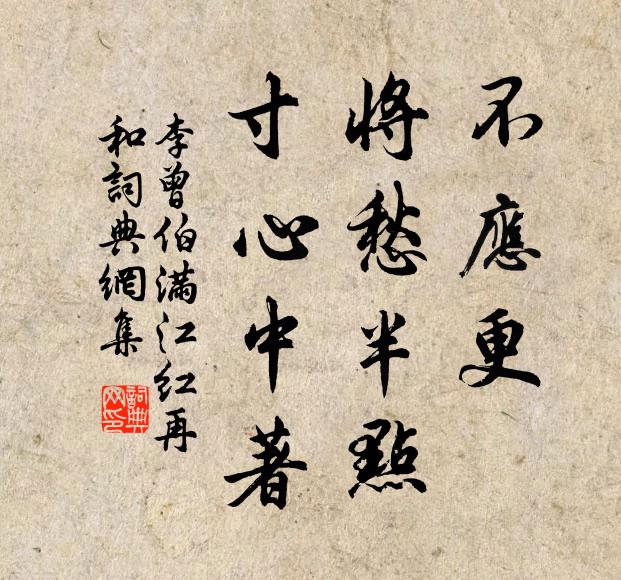 不應更
將愁半點
寸心中著
李曾伯滿江紅再
和詞典網集
詞典
网印